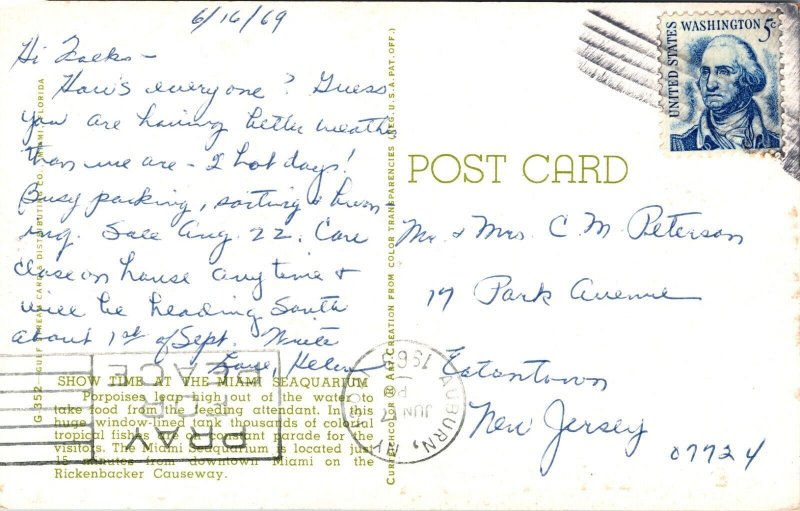 6/16/69
Hi Folks -
How's everyone? Guess
you are having better weather
than we are - 2 hot days!
Busy packing, sorting & throw
ing. Sale Aug. 22. Can
close on house anytime &
will be heading South
about 1st of Sept. Write
Love, Helen
SHOW TIME AT THE MIAMI SEAQUARIUM
Porpoises leap high out of the water to
take food from the feeding attendant. In this
huge window-lined tank thousands of colorful
tropical fishes are on constant parade for the
visitors. The Miami Seaquarium is located just
15 minutes from downtown Miami on the
Rickenbacker Causeway.
G-352 GULF STREAM CARD & DISTRIBUTING CO., MIAMI, FLORIDA
CURTEICHCOLOR ® ART CREATION FROM COLOR TRANSPARENCIES (REG. U.S.A. PAT. OFF.)
POST CARD
UNITED STATES
WASHINGTON 5c
Mr. & Mrs. C. M. Peterson
17 Park Avenue
Eatontown
New Jersey
07724
PRAY
FOR
PEACE
AUBURN,
JUN 17
PM
1969